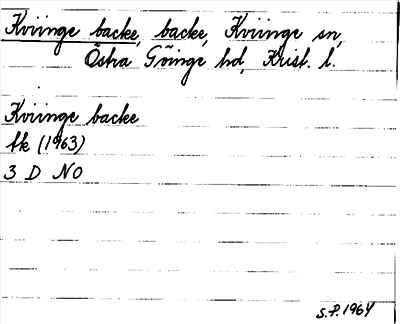 Kviinge backe, backe, Kviinge sn,
Östra Göinge hd, Krist. l.
Kviinge backe
fk (1963)
3 D NO
S.P. 1964